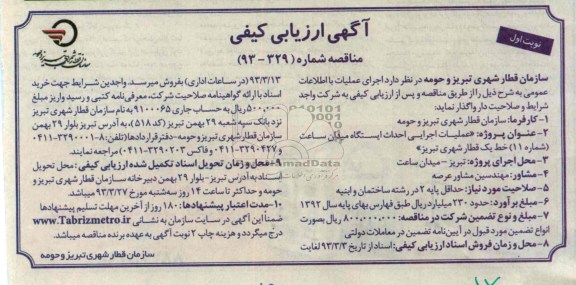 نوبت اول
آگهی ارزیابی کیفی
مناقصه شماره (۳۲۹-۹۳)
سازمان قطار شهری تبریز و حومه در نظر دارد اجرای عملیات با اطلاعات
عمومی به شرح ذیل را از طریق مناقصه و پس از ارزیابی کیفی به شرکت واجد
شرایط و صلاحیت دار واگذار نماید:
۱- کارفرما: سازمان قطار شهری تبریز و حومه
۲- عنوان پروژه: «عملیات اجرایی احداث ایستگاه میدان ساعت
(شماره ۱۱) خط یک قطار شهری تبریز»
۳- محل اجرای پروژه: تبریز - میدان ساعت
۴- مشاور: مهندسین مشاور عرصه
۵- صلاحیت مورد نیاز: حداقل پایه ۲ در رشته ساختمان و ابنیه
۶- مبلغ برآورد: حدود ۲۳۰ میلیارد ریال طبق فهارس بهای پایه سال ۱۳۹۲
۷- مبلغ و نوع تضمین شرکت در مناقصه: ۸۰۰,۰۰۰,۰۰۰ ریال بصورت
انواع تضمین مورد قبول در آیین‌نامه تضمین در معاملات دولتی
۸- محل و زمان فروش اسناد ارزیابی کیفی: اسناد از تاریخ ۹۳/۳/۳ لغایت
۹۳/۳/۱۳ (در ساعات اداری) بفروش میرسد. واجدین شرایط جهت خرید
اسناد با ارائه گواهینامه صلاحیت شرکت، معرفی‌نامه کتبی و رسید واریز مبلغ
۵۰۰,۰۰۰ ریال به حساب جاری ۹۱۰۰۰۶۵ به نام سازمان قطار شهری تبریز
نزد بانک سپه شعبه ۲۹ بهمن تبریز (کد ۵۱۸)، به آدرس تبریز بلوار ۲۹ بهمن
سازمان قطار شهری تبریز و حومه - دفتر قراردادها (تلفن: ۸-۳۲۹۰۰۰۱-۰۴۱۱
و ۳۲۹۰۴۲۷-۰۴۱۱ و فاکس ۳۲۹۰۲۰۳-۰۴۱۱) مراجعه نمایند.
۹- محل و زمان تحویل اسناد تکمیل شده ارزیابی کیفی: محل تحویل
اسناد به آدرس تبریز - بلوار ۲۹ بهمن دبیرخانه سازمان قطار شهری تبریز و
حومه و حداکثر تا ساعت ۱۴ روز سه‌شنبه مورخ ۹۳/۳/۲۷ میباشد.
۱۰- مدت اعتبار پیشنهادها: ۱۸۰ روز از آخرین مهلت تسلیم پیشنهادها
ضمناً این آگهی در سایت سازمان به نشانی www.Tabrizmetro.ir
درج میگردد و هزینه چاپ ۲ نوبت آگهی به عهده برنده مناقصه میباشد.
سازمان قطار شهری تبریز و حومه